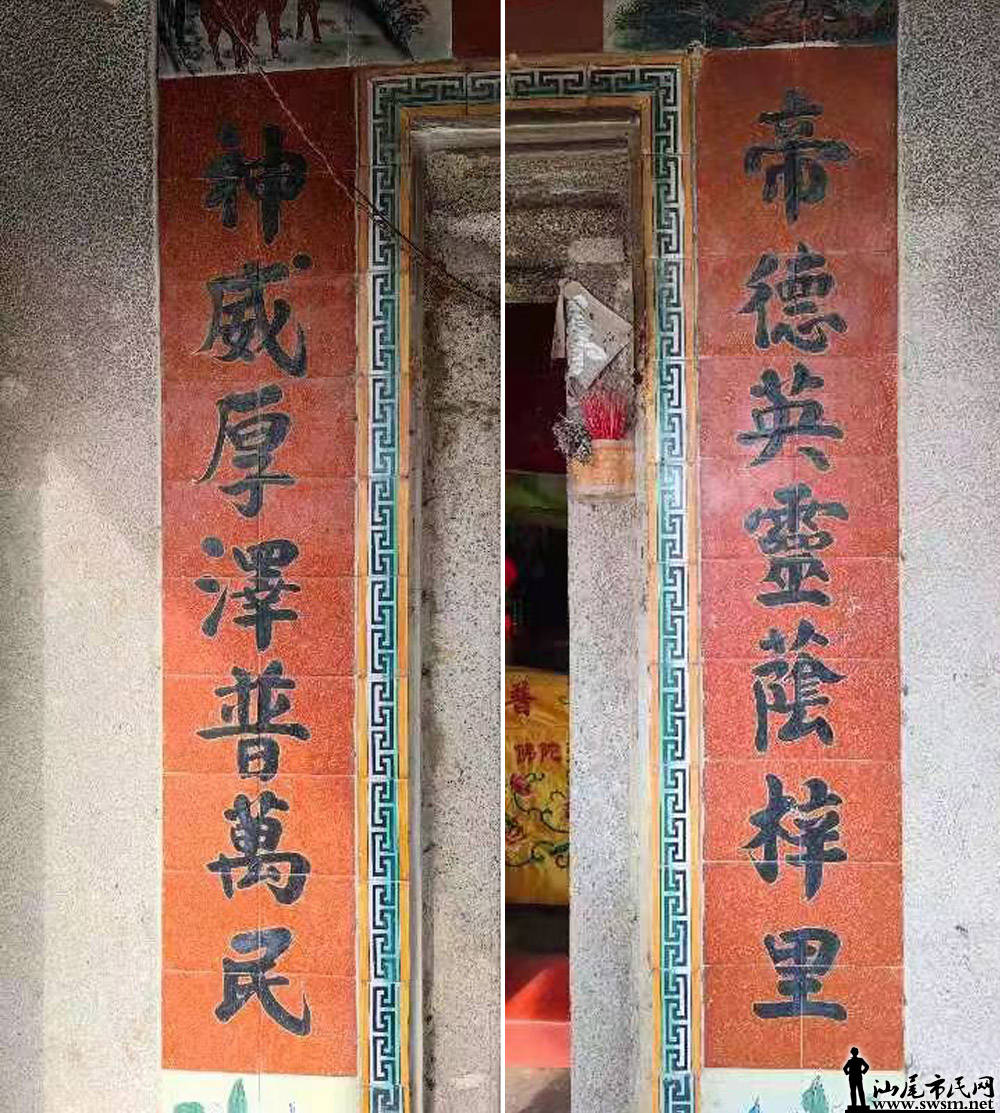 帝德英靈蔭梓里
神威厚澤普萬民
普
佛陀
汕尾市民网
www.swsm.net